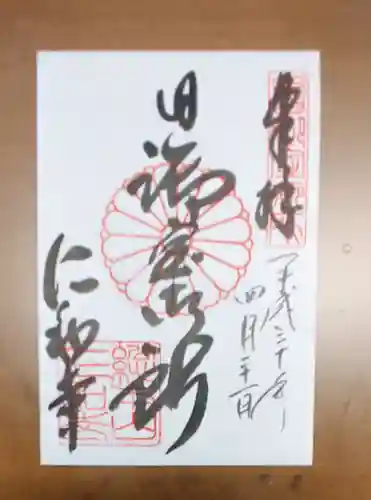 奉拝
平成三十年
四月三日
旧御室御所
仁和寺